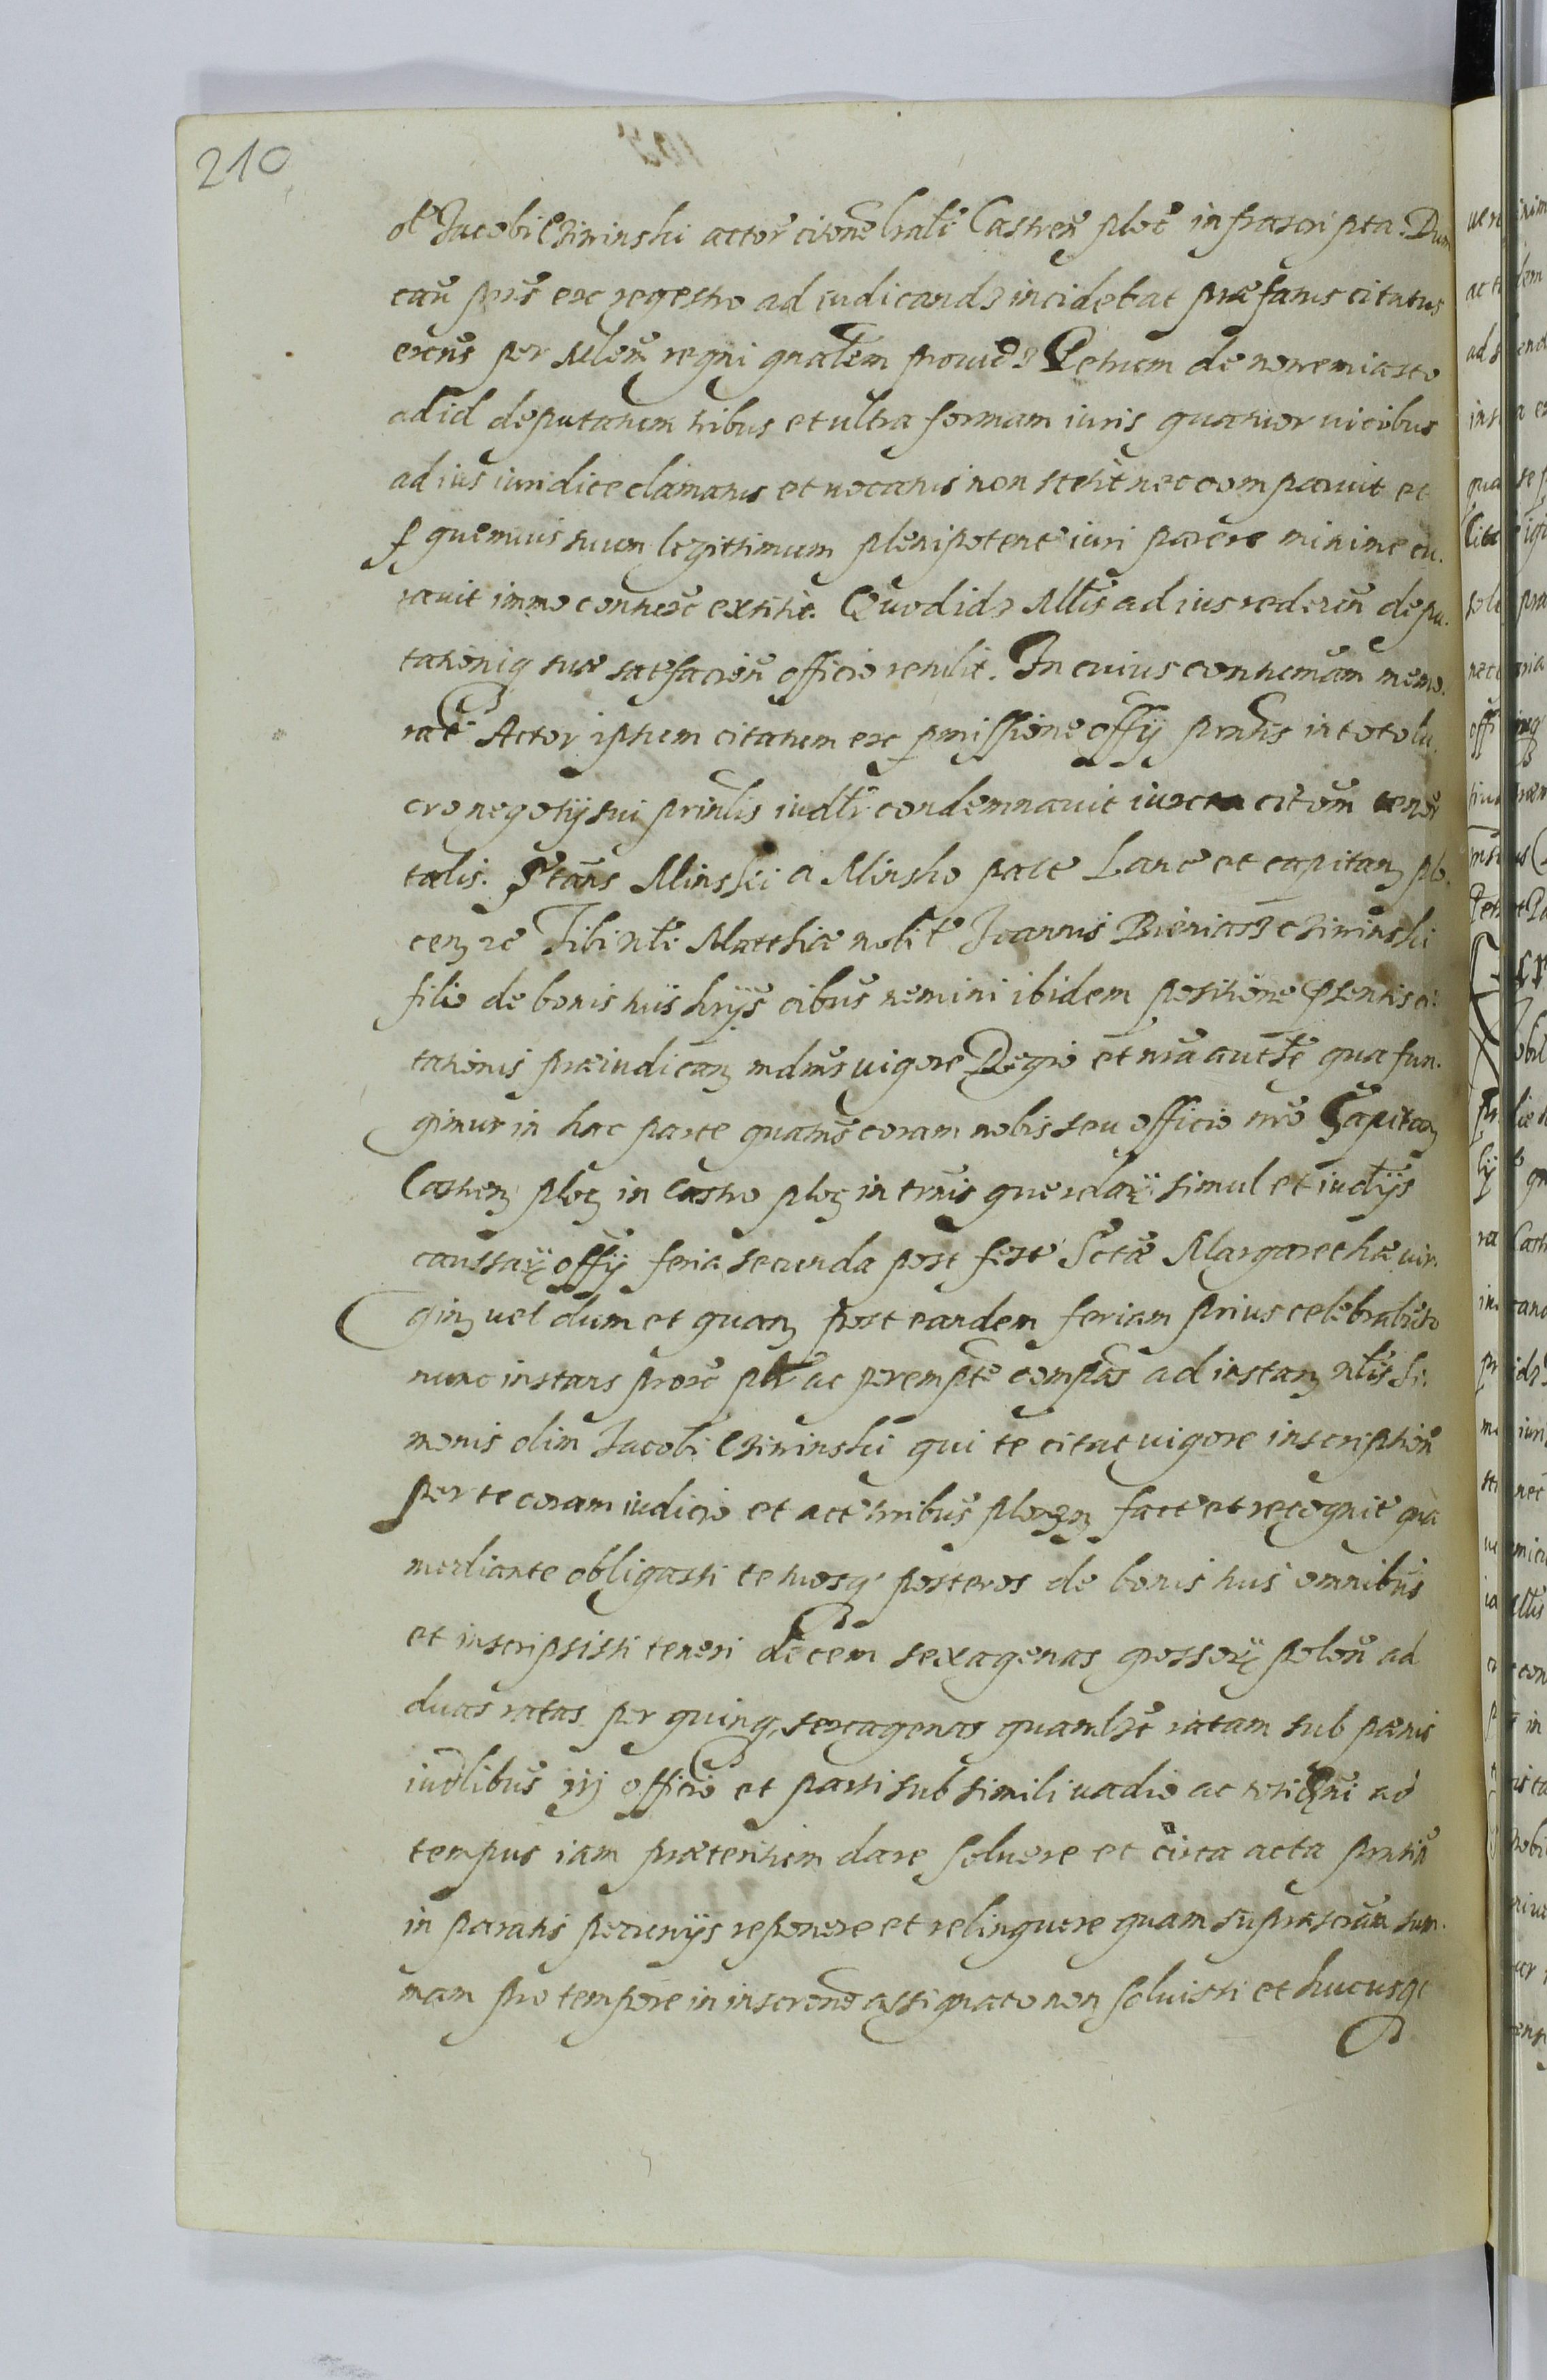 210
ol Jacobi Czirinski actor citone lrali Castren ploc infrascripta. Dum
cau pns exc regestro ad iudicand incidebat præfatus citatus
excns per Mlem regni gnalem provid Petrum de novemiasto
ad id deputatum tribus et ultra formam iuris quatuor vicibus
ad ius iuridice clamatus et vocatus non stetit nec comparuit et
p quemvis suum legittimum plenipotent iuri parere minime cu.
ravit immo contuax extitit. Quod idz Mltis ad ius reder depu.
tationiq suæ satisfacien officio retulit. In cuius contuciam memo.
rat Actor ipsum citatum ex pmissione offy prntis in toto lu.
cro negotij sui prinlis iudlr condemnavit iuxta citom tenor
talis. Stans Minski a Minsko palt Lanc et capitan plo.
cen zc Tibi nli Matthiæ nobil Joannis Bieniasz Czirinski
filio de bonis tuis hrijs oibus nemini ibidem positione psentis ci.
tationis præiudican mdmus vigore Regio et nra authte qua fun.
gimur in hac parte quatus coram nobis seu officio nro Capitan
Castren ploc in Castro ploc in trnis querelar simul et iudijs
caussar offy feria secunda post fest Sctæ Margarethæ vir.
gin vel dum et quan post eandem feriam prius celebrabnto
nunc instans prore plr ac perempte compas ad instan nlis Si.
monis olim Jacobi Czirinski qui te citat vigore inscription
per te coram iudicio et act trribus plocen fact et recognit qua
mediante obligasti te tuosq posteros de bonis tuis omnibus
et inscripsisti teneri decem sexagenas grossor polon ad
duas ratas per quinq sexagenas quamlbt ratam sub pænis
iudlibus iij officio et parti sub simili vadio ac ad
tempus iam præteritum dare solvere et circa acta prntia
in paratis pecunijs reponere et relinquere quam suprascram sum.
mam pro tempore in inscrone assignato non solvisti et hucusq